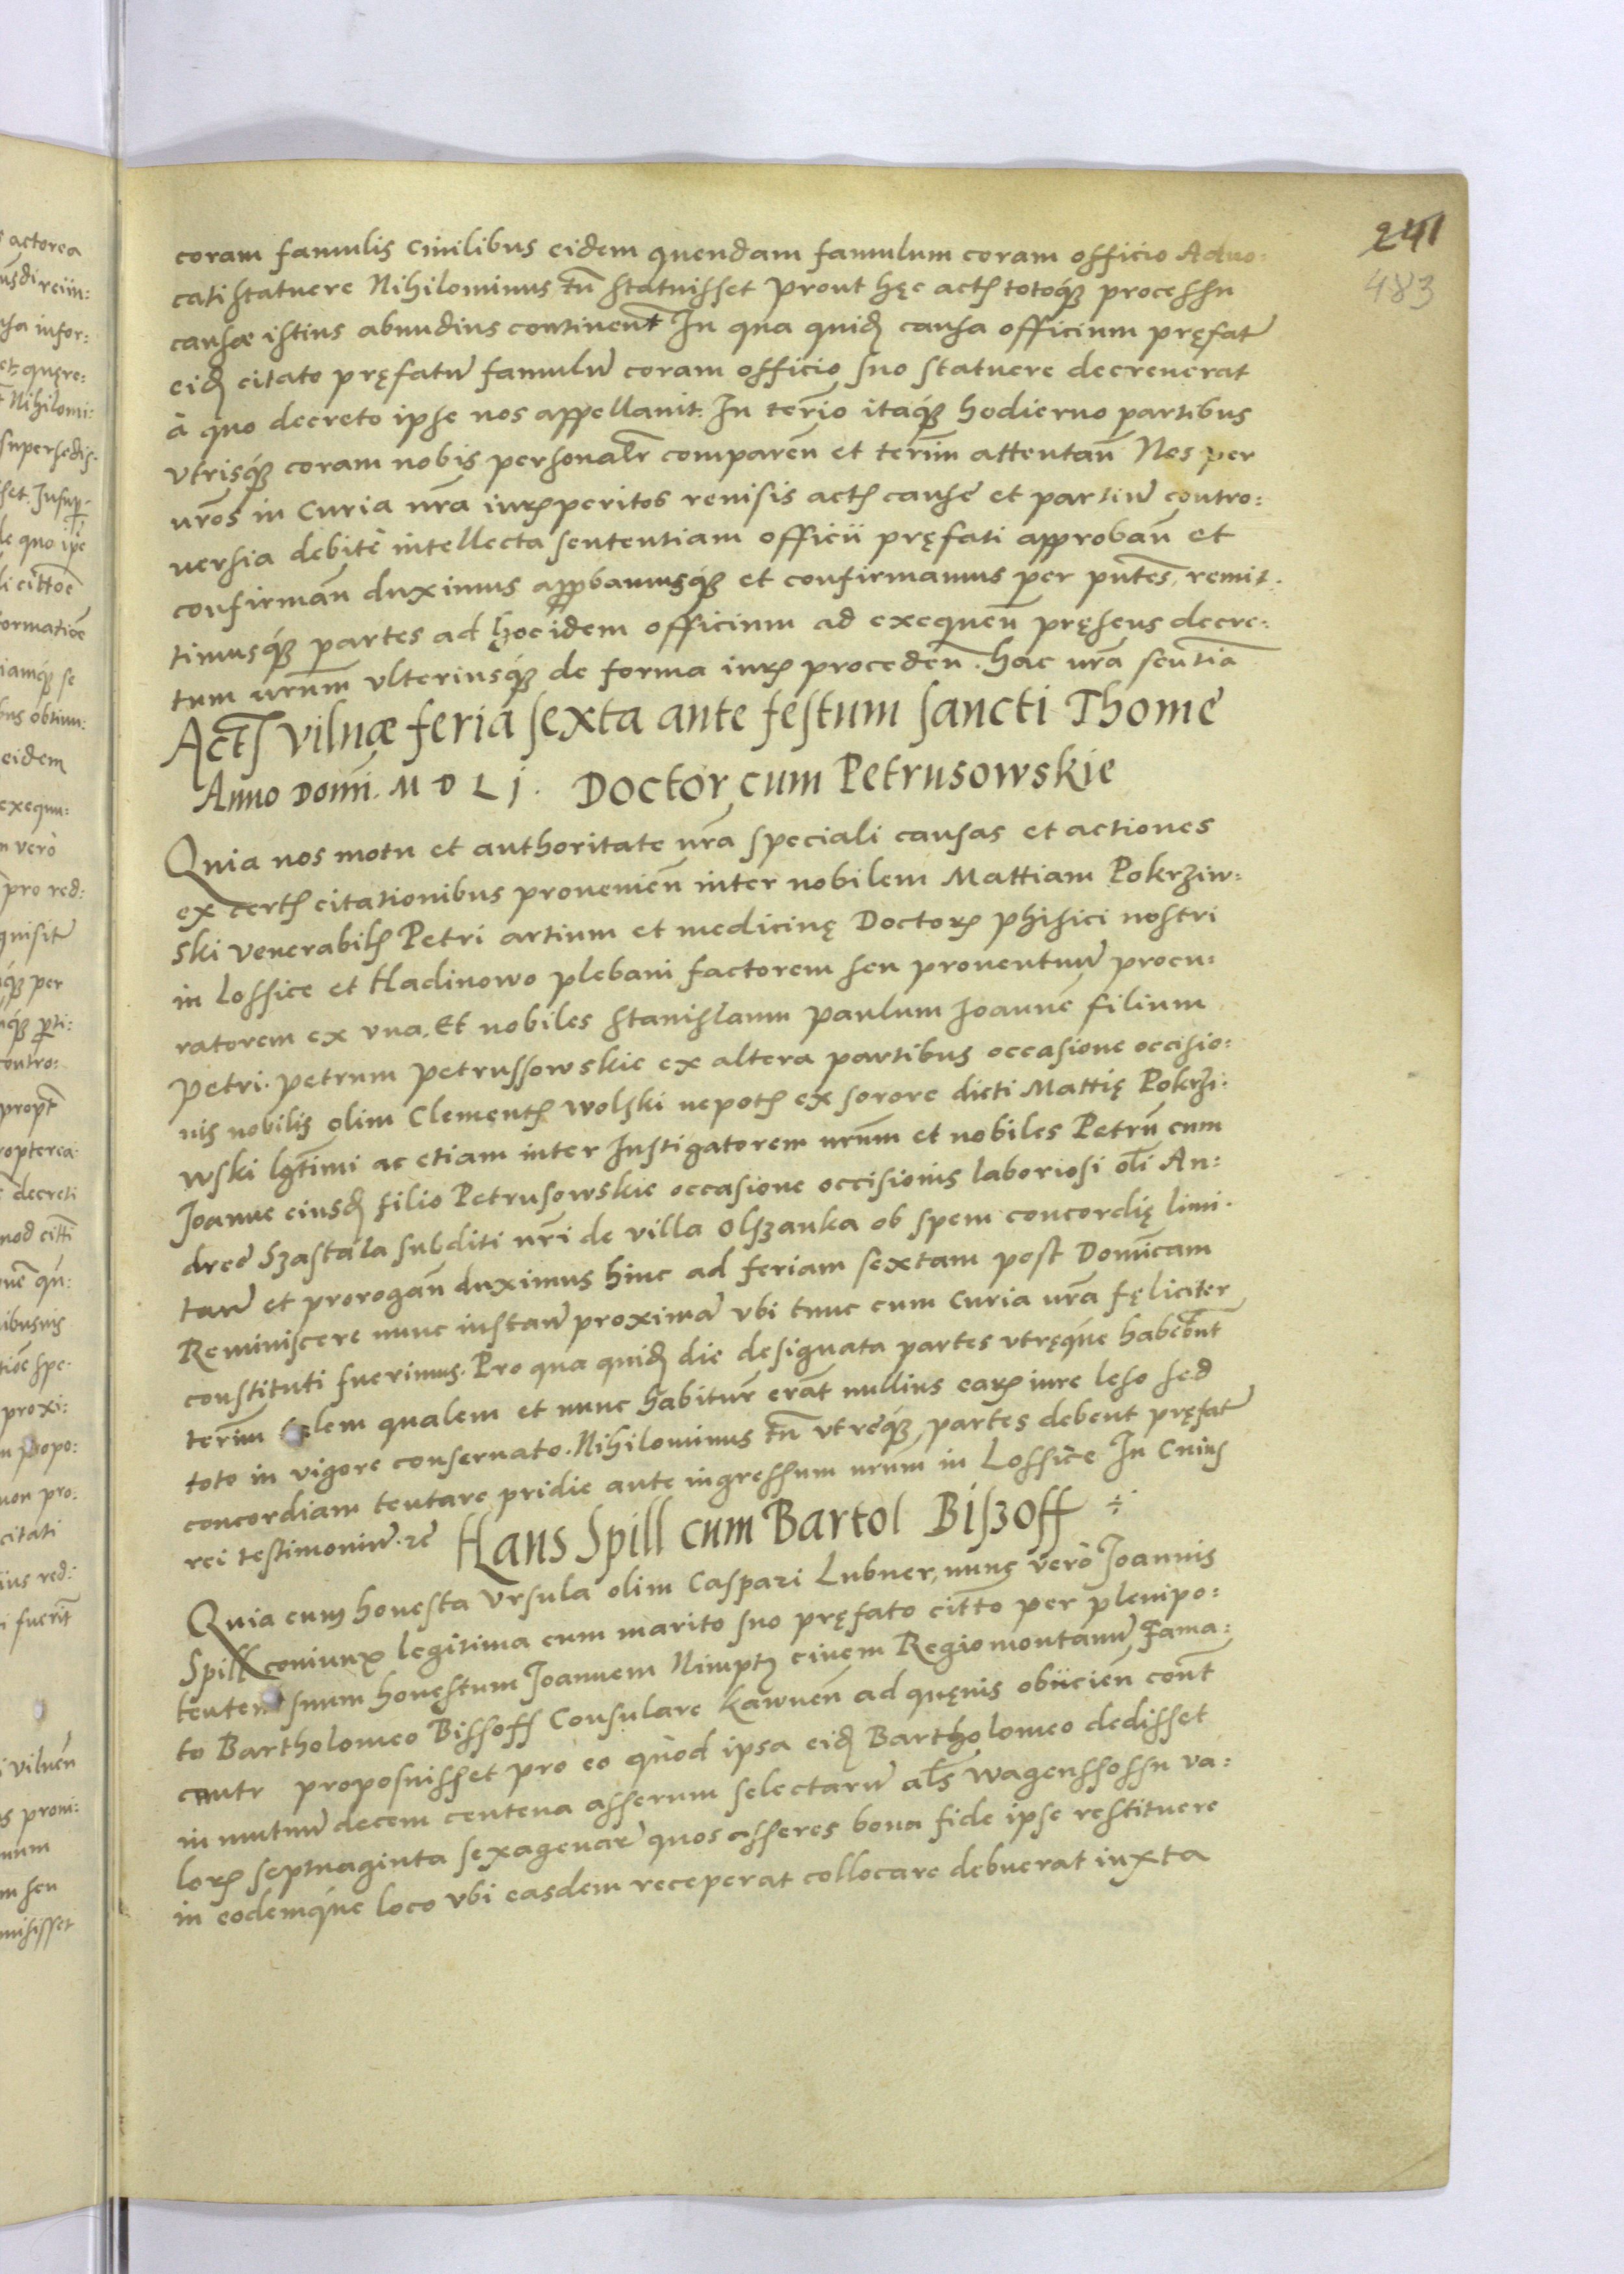 241
483
coram famulis ciuilibus eidem quendam famulum coram officio Aduo:
cati statuere Nihilominus tñ statuisset prout hęc actis totoq́ue processu
causæ istius abundius continent In qua quidem causa officium pręfatū
eidem citato pręfatum famulum coram officio suo statuere decreuerat
à quo decreto ipse nos appellauit. In terīo itaq́ue hodierno partibus
vtrisq́ue coram nobis personalr̄ compareñ et terīm attentañ Nos per
nr̄os in Curia nr̄a iurisperitos reuisis actis cause et partium contro:
uersia debitè intellecta sententiam officii pręfati approbañ et
confirmañ duximus approbamusq́ue et confirmamus per pñtes, remit:
timusq́ue partes ad hoc idem officium ad exequeñ pręsens decre:
tum nr̄um vlteriusq́ue de forma iuris procedeñ. hac nr̄a sentīa
Actis Vilnæ feria sexta ante festum sancti Thome
Anno Domī. M D L j. Doctor cum Petrusowskie
Quia nos motu et authoritate nr̄a speciali causas et actiones
ex certis citationibus proueniēn inter nobilem Mattiam Pokrziw:
ski Venerabilis Petri artium et medicinę Doctoris phisici nostri
in Lossice et Hadinowo plebani factorem seu prouentuum procu:
ratorem ex vna. Et nobiles Stanislaum Paulum Joannē filium
Petri. Petrum Petrussowskie ex altera partibus occasione occisio:
nis nobilis olim Clementis Wolski nepotis ex sorore dicti Mattię Pokrzi:
wski lgt̄imi ac etiam inter Instigatorem nr̄um et nobiles Petrū cum
Joanne eiusdem filio Petrusowskie occasione occisionis laboriosi oli An:
dreę Szastala subditi nr̄i de villa Olszanka ob spem concordię limi:
tañ et prorogañ duximus hinc ad feriam sextam post Domīcam
Reminiscere nunc instañ proximā vbi tunc cum Curia nr̄a fęliciter
constituti fuerimus. Pro qua quidem die designata partes vtręque habebunt
terīm talem qualem et nunc habiturę erāt nullius earum iure leso sed
toto in vigore conseruato. Nihilominus tñ vtręq́ue partes debent pręfatę
concordiam tentare pridie ante ingressum nr̄um in Lossice In Cuius
rei testimonium. rē Hans Spill cum Bartol Biszoff
Quia cum honesta Vrsula olim Caspari Lubner, nunc verò Joannis
Spill coniunx legitima cum marito suo pręfato citt̄o per plenipo:
tentem suum honestum Joannem Nimptz ciuem Regiomontanum Fama:
to Bartholomeo Bissoff Consulare Kawneñ ad quęuis obiicieñ cont̄
proposuisset pro eo quòd ipsa eidem Bartholomeo dedisset
in mutuum decem centena asserum selectarum al̄s Wagenschossu va:
loris septuaginta sexagenarum quos asseres bona fide ipse restituere
in eodemq́ue loco vbi easdem receperat collocare debuerat iuxta